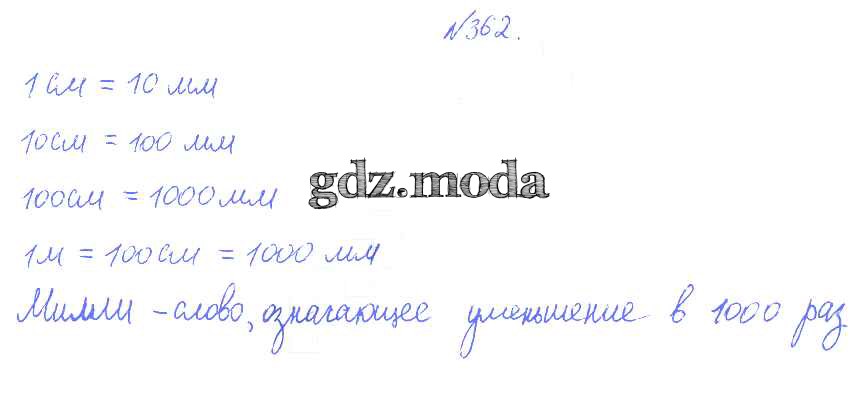 №362.
1 см = 10 мм
10см = 100 мм
gdz.moda
100см = 1000мм
1м = 100см = 1000 мм
Милли - слово, означающее уменьшение в 1000 раз